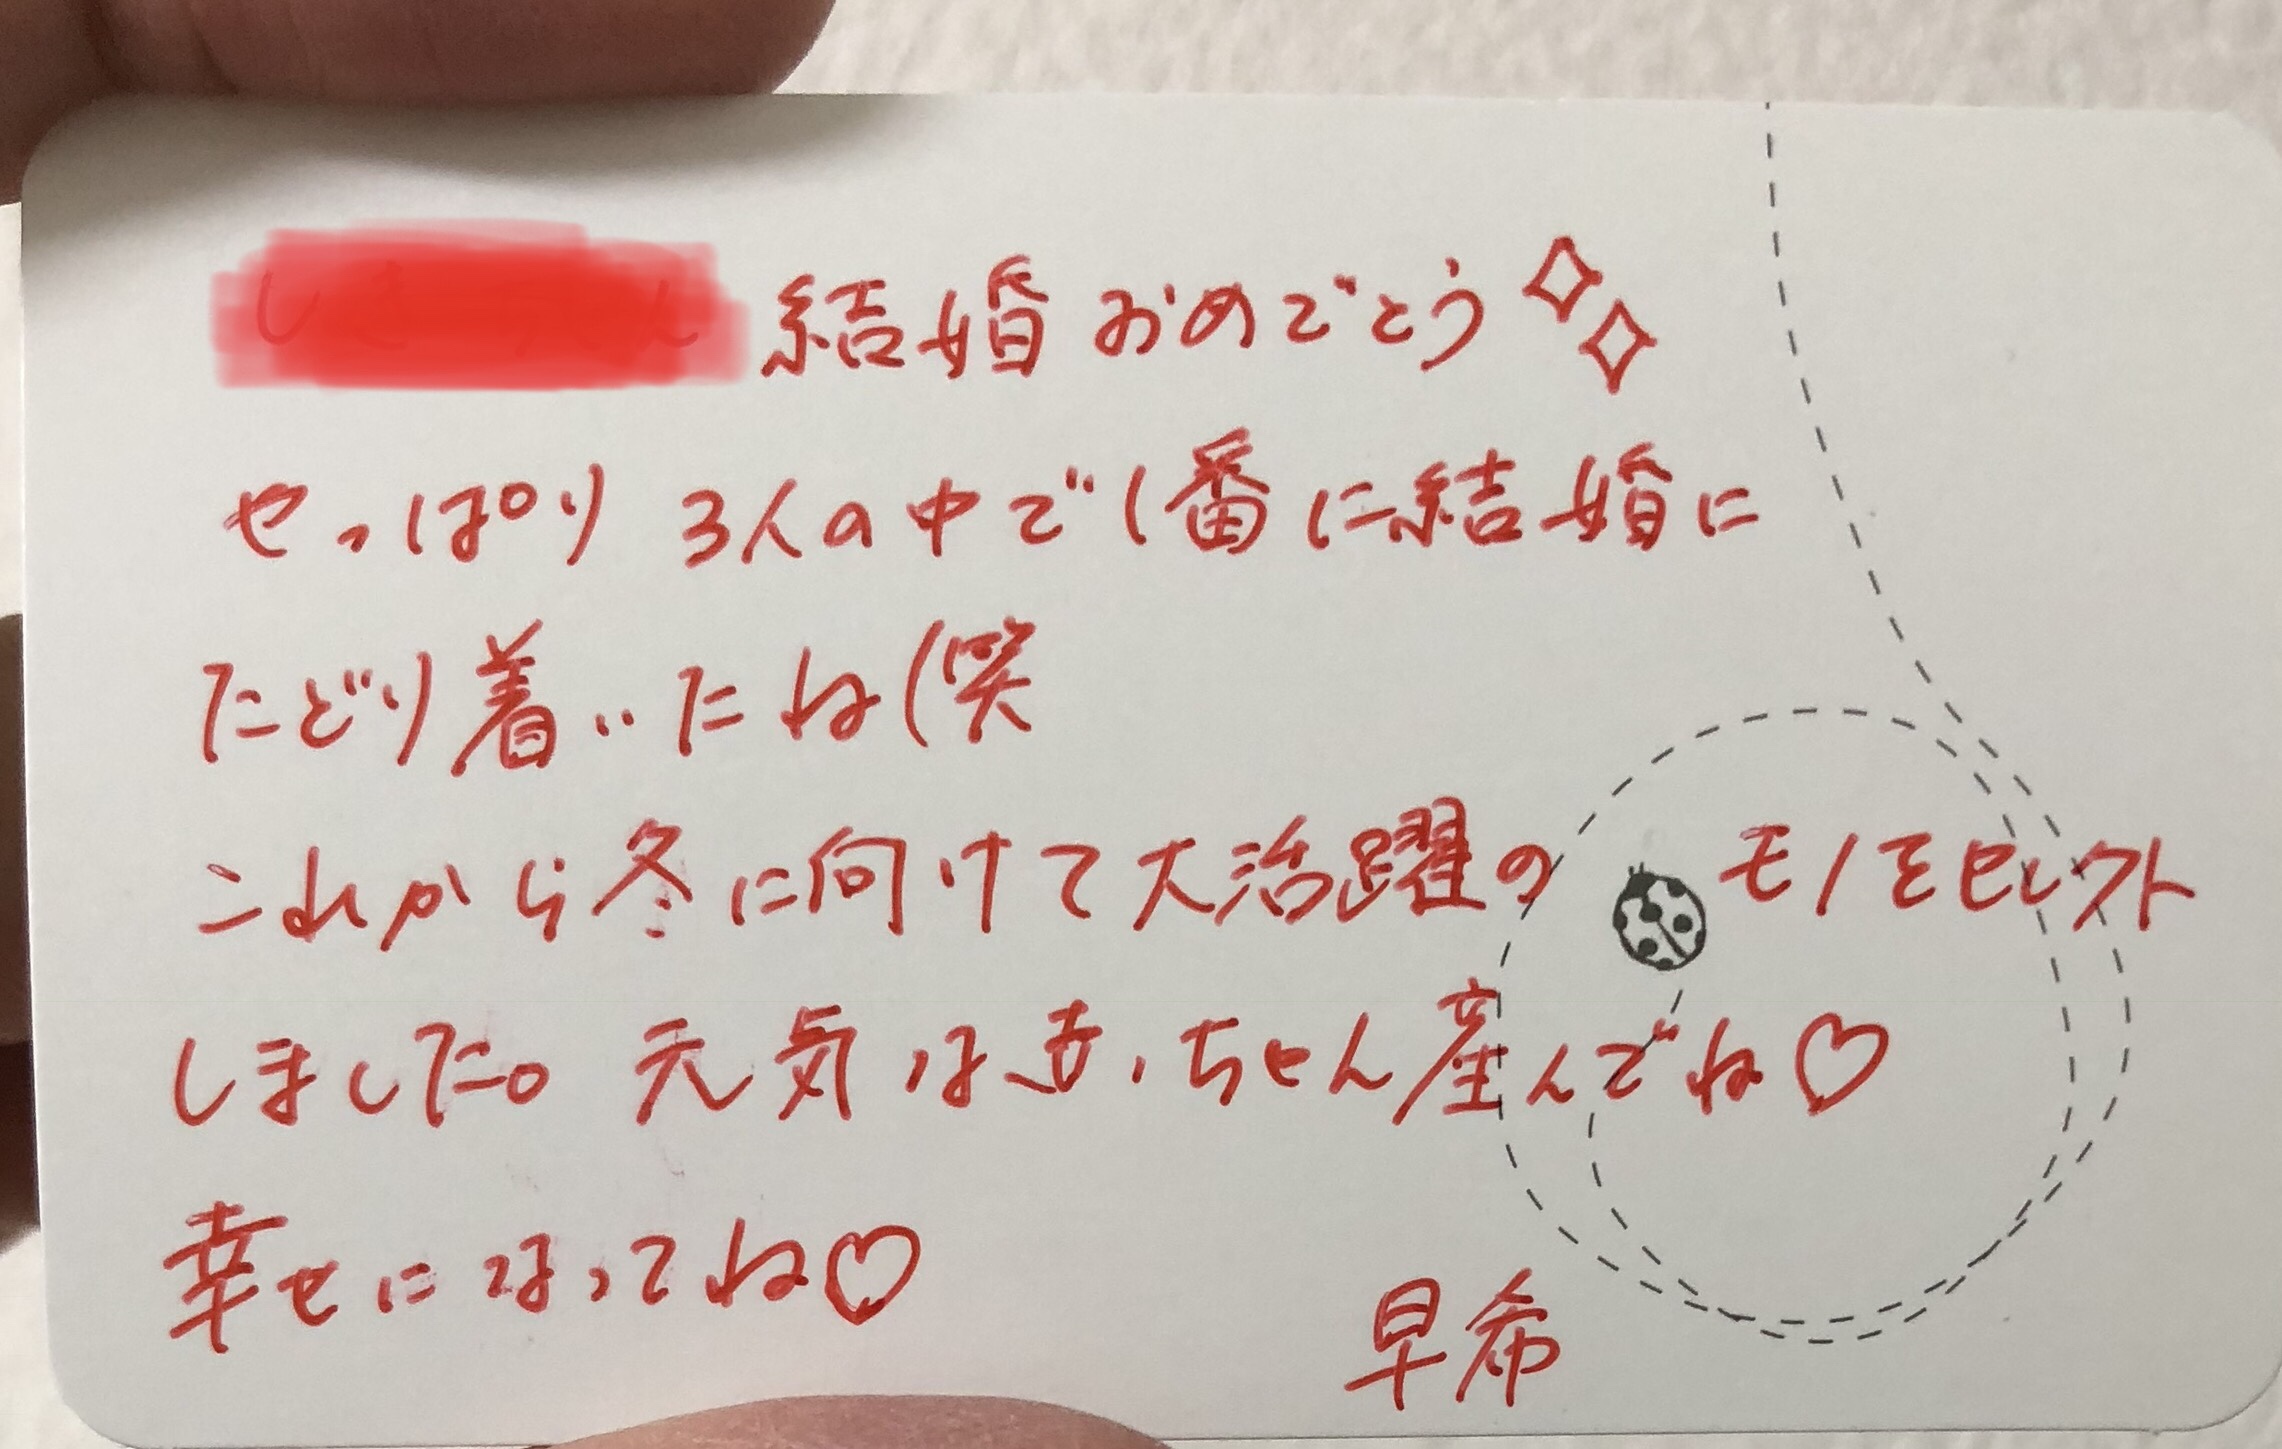 結婚おめでとう
やっぱり3人の中で1番に結婚に
たどり着いたね(笑
これから冬に向けて大活躍のモノをセレクト
しました。元気な赤ちゃん産んでね♡
幸せになってね♡
早希